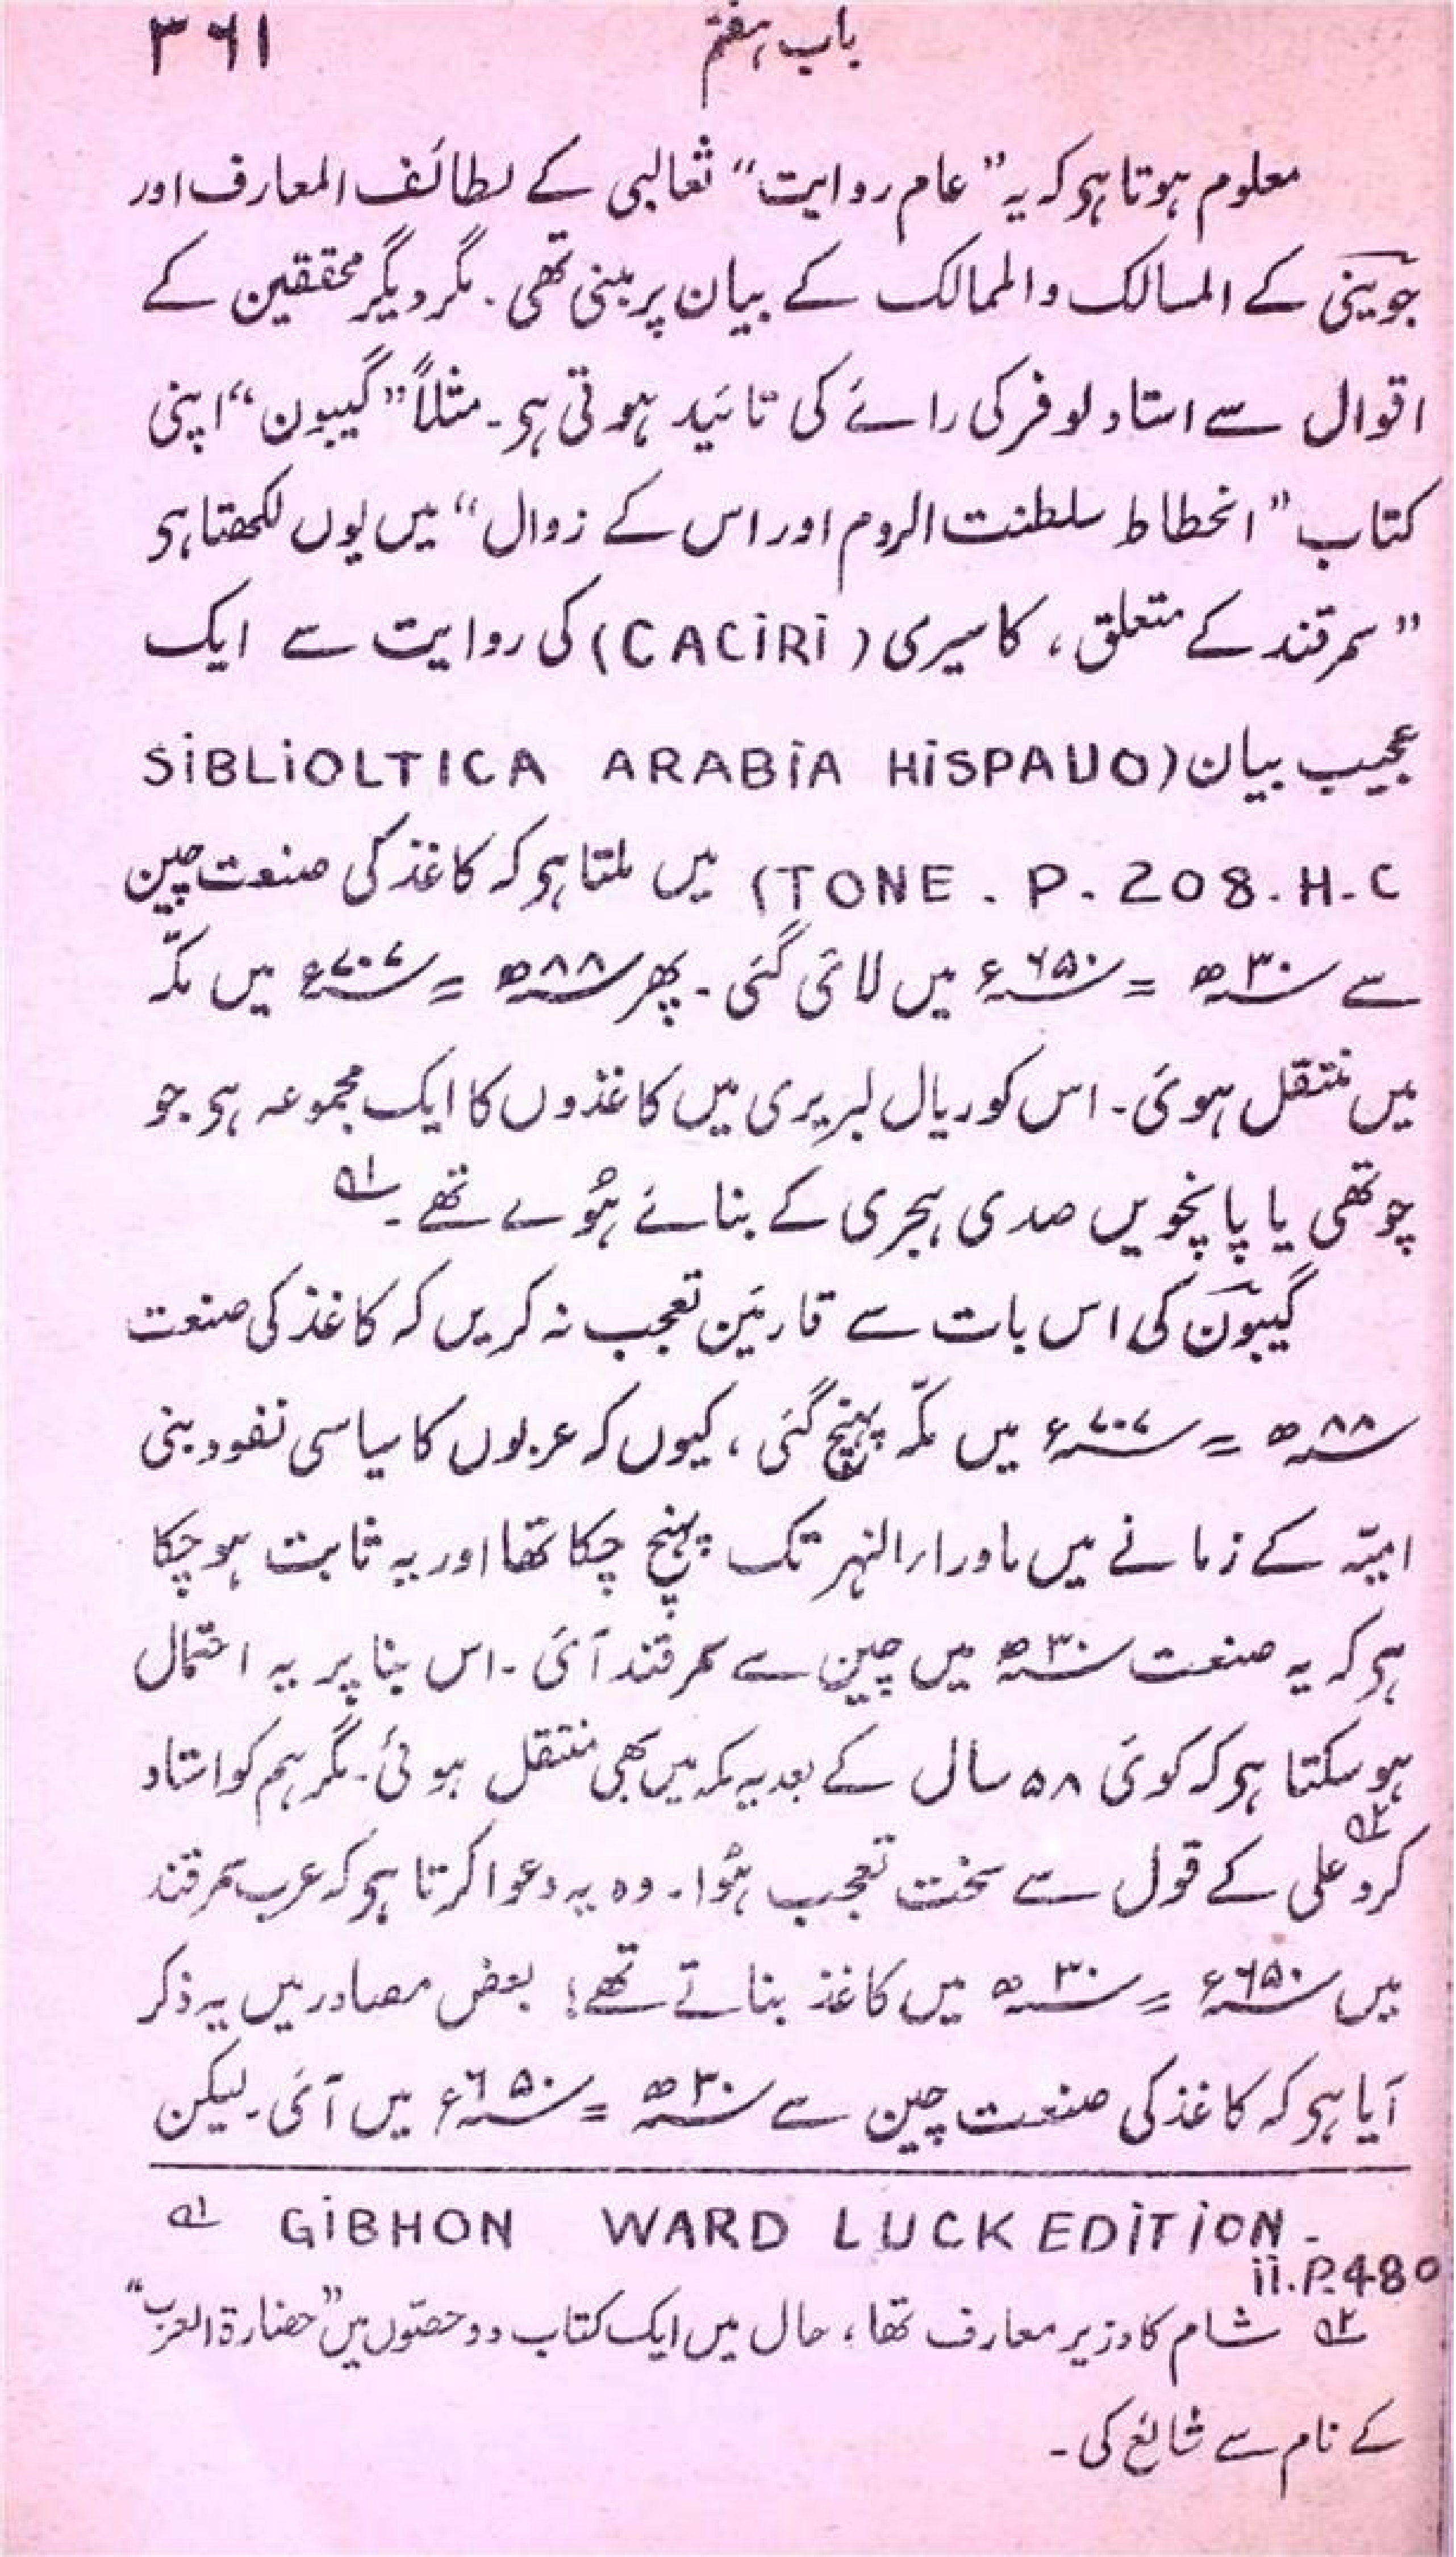 باب ہفتم ۳۶۱
معلوم ہوتا ہو کہ یہ ”عام روایت“ ثعالبی کے لطائف المعارف اور
جوینی کے المسالک والممالک کے بیان پر مبنی تھی۔ مگر دیگر محققین کے
اقوال سے استاد لوفر کی رائے کی تائید ہوتی ہو۔ مثلاً ”گیبون“ اپنی
کتاب ”انحطاط سلطنت الروم اور اس کے زوال“ میں یوں لکھتا ہو
”سمرقند کے متعلق، کاسیری (CACiRi) کی روایت سے ایک
عجیب بیان (SiBLiOLTICA ARABiA HiSPAUO
TONE . P. 208. H-C) میں ملتا ہو کہ کاغذ کی صنعت چین
سے ۳۰ھ = ۶۵۰ء میں لائی گئی۔ پھر ۸۸ھ = ۷۰۷ء میں مکّہ
میں منتقل ہوئی۔ اس کوریال لبریری میں کاغذوں کا ایک مجموعہ ہو جو
چوتھی یا پانچویں صدی ہجری کے بنائے ہوئے تھے۔ ؂۱
گیبون کی اس بات سے قارئین تعجب نہ کریں کہ کاغذ کی صنعت
۸۸ھ = ۷۰۷ء میں مکّہ پہنچ گئی، کیوں کہ عربوں کا سیاسی نفوذ بنی
امیّہ کے زمانے میں ماوراء النہر تک پہنچ چکا تھا اور یہ ثابت ہو چکا
ہو کہ یہ صنعت ۳۰ھ میں چین سے سمرقند آئی۔ اس بنا پر یہ احتمال
ہو سکتا ہو کہ کوئی ۵۸ سال کے بعد یہ مکہ میں بھی منتقل ہوئی۔ مگر ہم کو استاد
کرد علی ؂۲ کے قول سے سخت تعجب ہُوا۔ وہ یہ دعوا کرتا ہو کہ عرب سمرقند
میں ۶۵۰ء = ۳۰ھ میں کاغذ بناتے تھے؛ بعض مصادر میں یہ ذکر
آیا ہو کہ کاغذ کی صنعت چین سے ۳۰ھ = ۶۵۰ء میں آئی۔ لیکن
؂۱ GiBHON WARD LUCK EDiTiON -
ii.P.480
؂۲ شام کا وزیر معارف تھا، حال میں ایک کتاب دو حصّوں میں ”حضارۃ العرب“
کے نام سے شائع کی۔